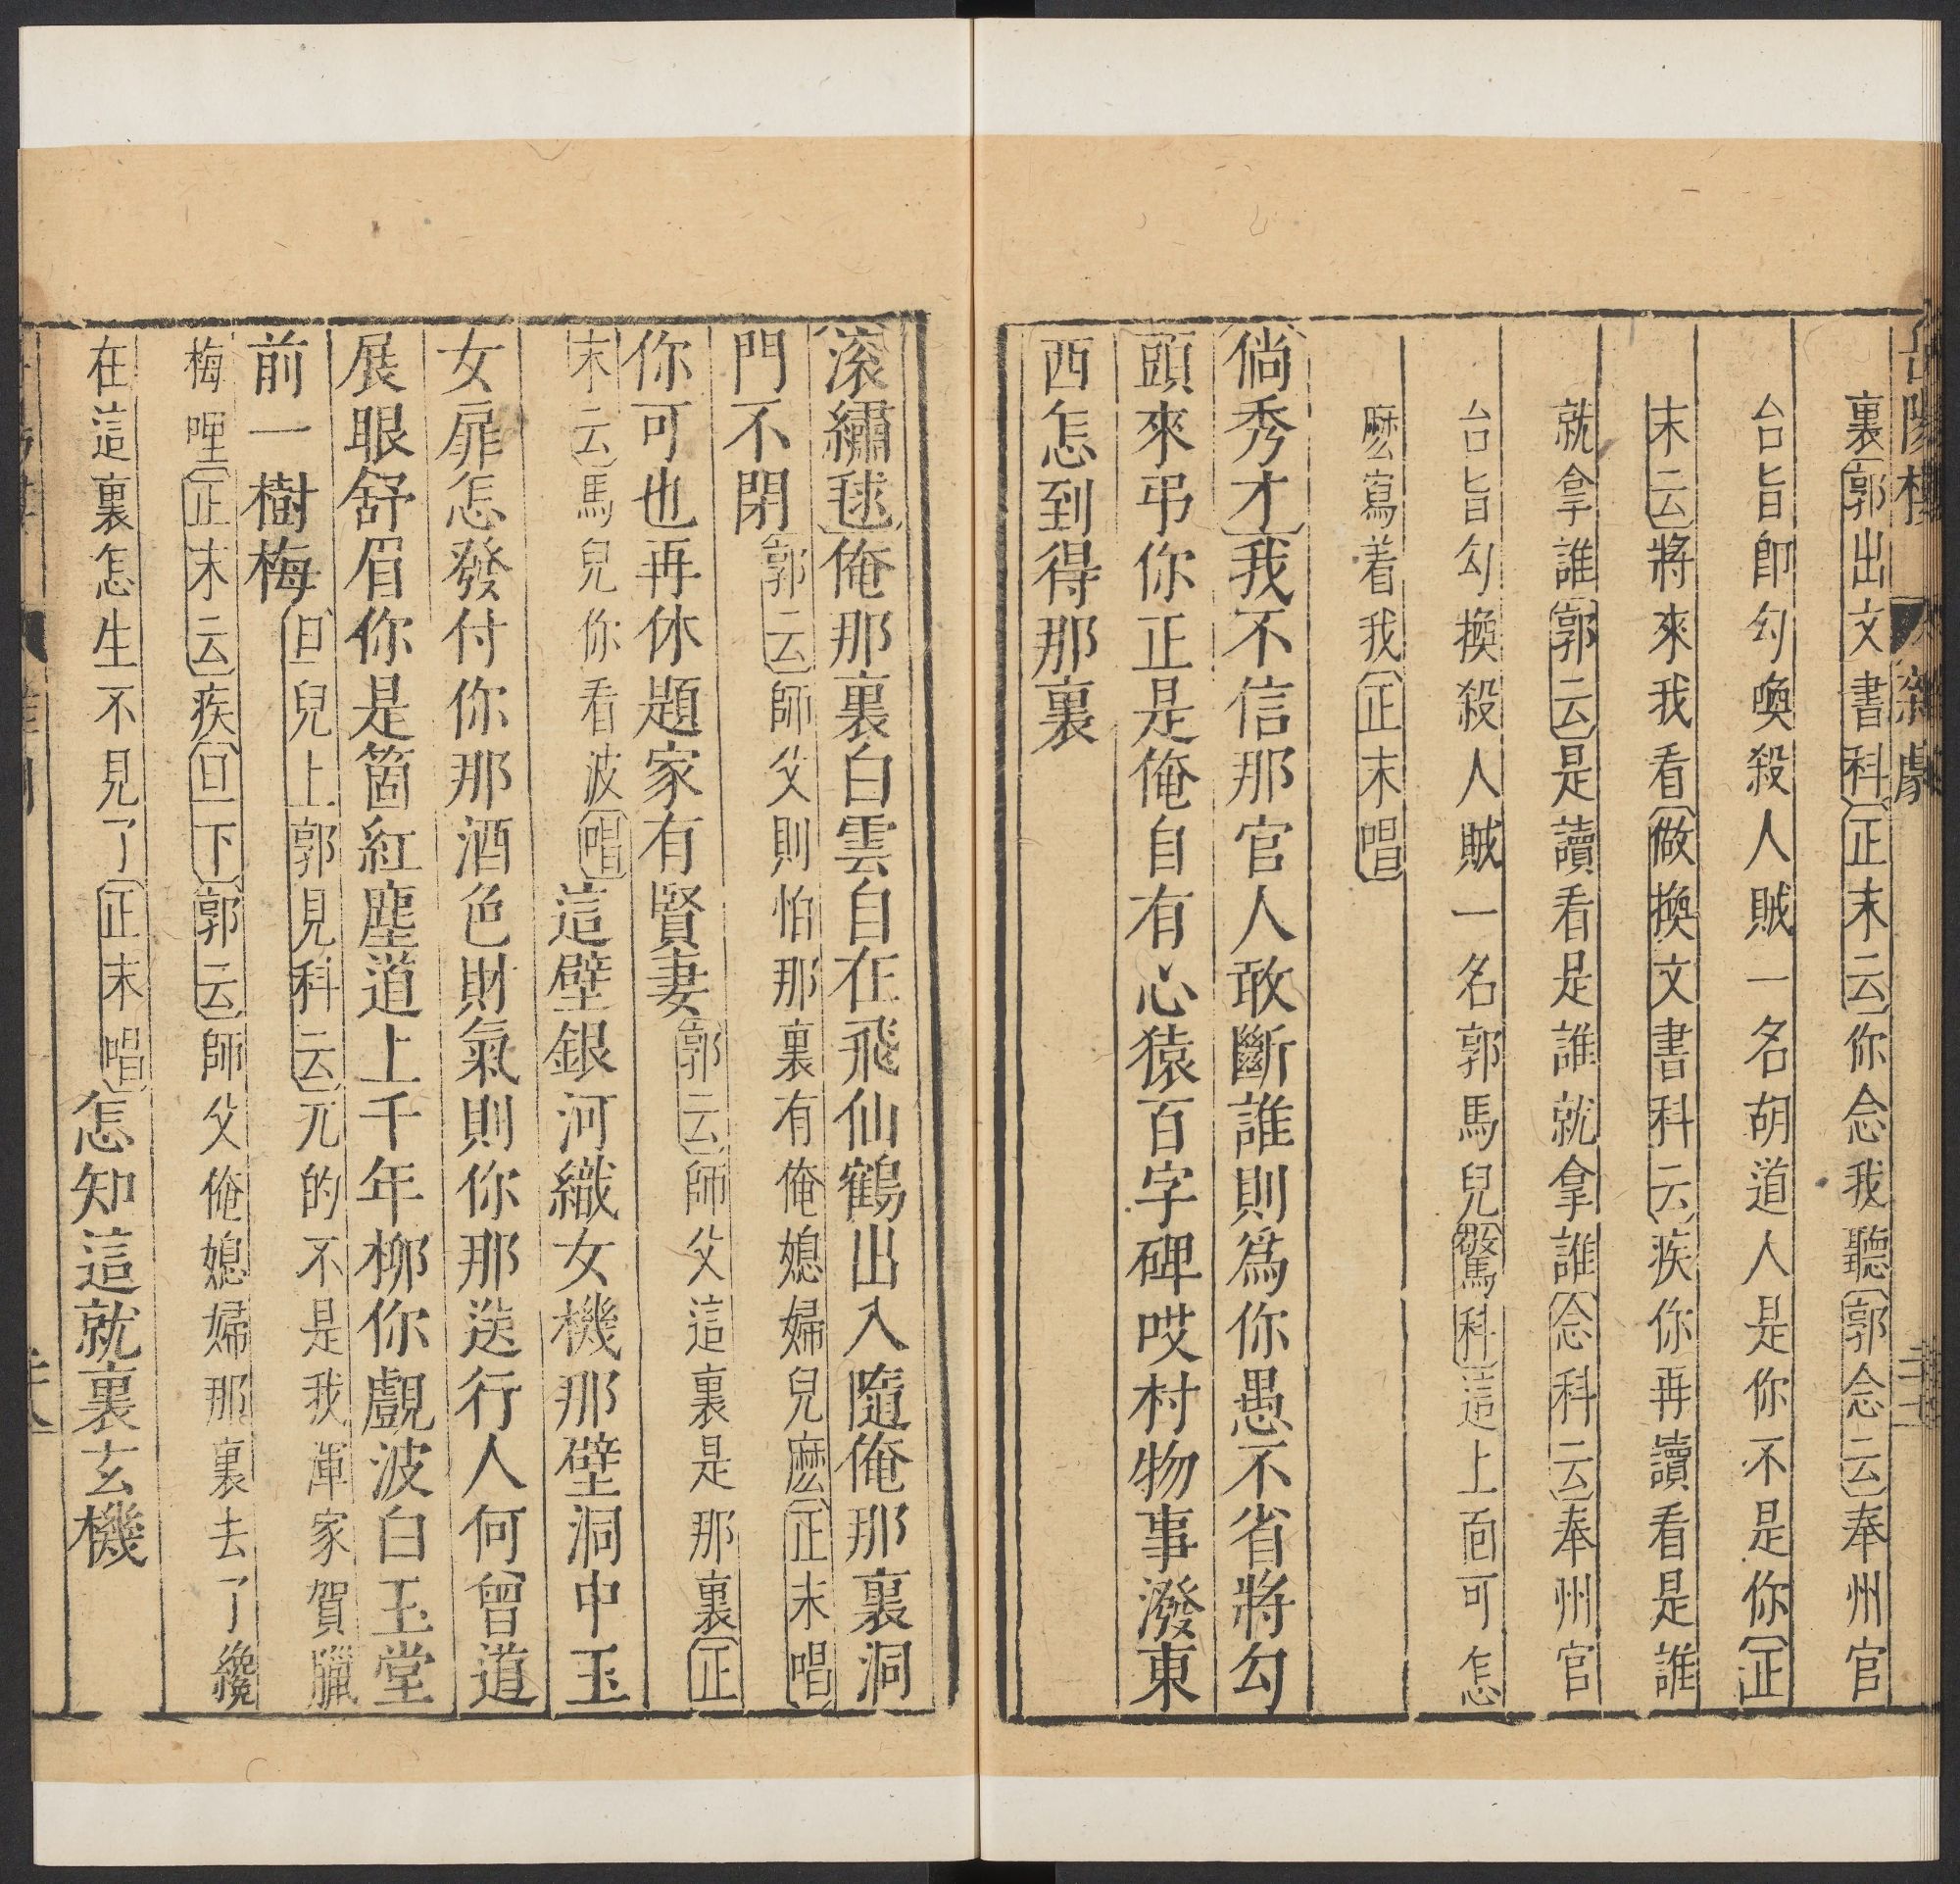 岳陽樓 雜劇 二十七
裏郭出文書科正末云你念我聽郭念云奉州官
台旨即勾喚殺人賊一名胡道人是你不是你正
末云將來我看做換文書科云疾你再讀看是誰
就拿誰郭云是讀看是誰就拿誰念科云奉州官
台旨勾換殺人賊一名郭馬兒驚科這上面可怎
麽寫着我正末唱
倘秀才我不信那官人敢斷誰則爲你愚不省將勾
頭來弔你正是俺自有心猿百字碑哎村物事潑東
西怎到得那裏
滚繡毬俺那裏白雲自在飛仙鶴出入隨俺那裏洞
門不閉郭云師父則怕那裏有俺媳婦兒麽正末唱
你可也再休題家有賢妻郭云師父這裏是那裏正
末云馬兒你看波唱這壁銀河織女機那壁洞中玉
女扉怎發付你那酒色財氣則你那送行人何曾道
展眼舒眉你是箇紅塵道上千年柳你覷波白玉堂
前一樹梅旦兒上郭見科云兀的不是我渾家賀臘
梅哩正末云疾旦下郭云師父俺媳婦那裏去了纔
在這裏怎生不見了正末唱怎知這就裏玄機